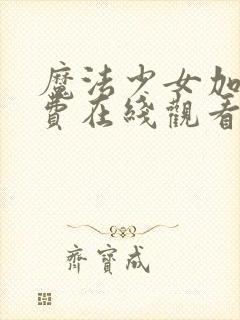 魔法少女加
費在綫觀看
齊寶成